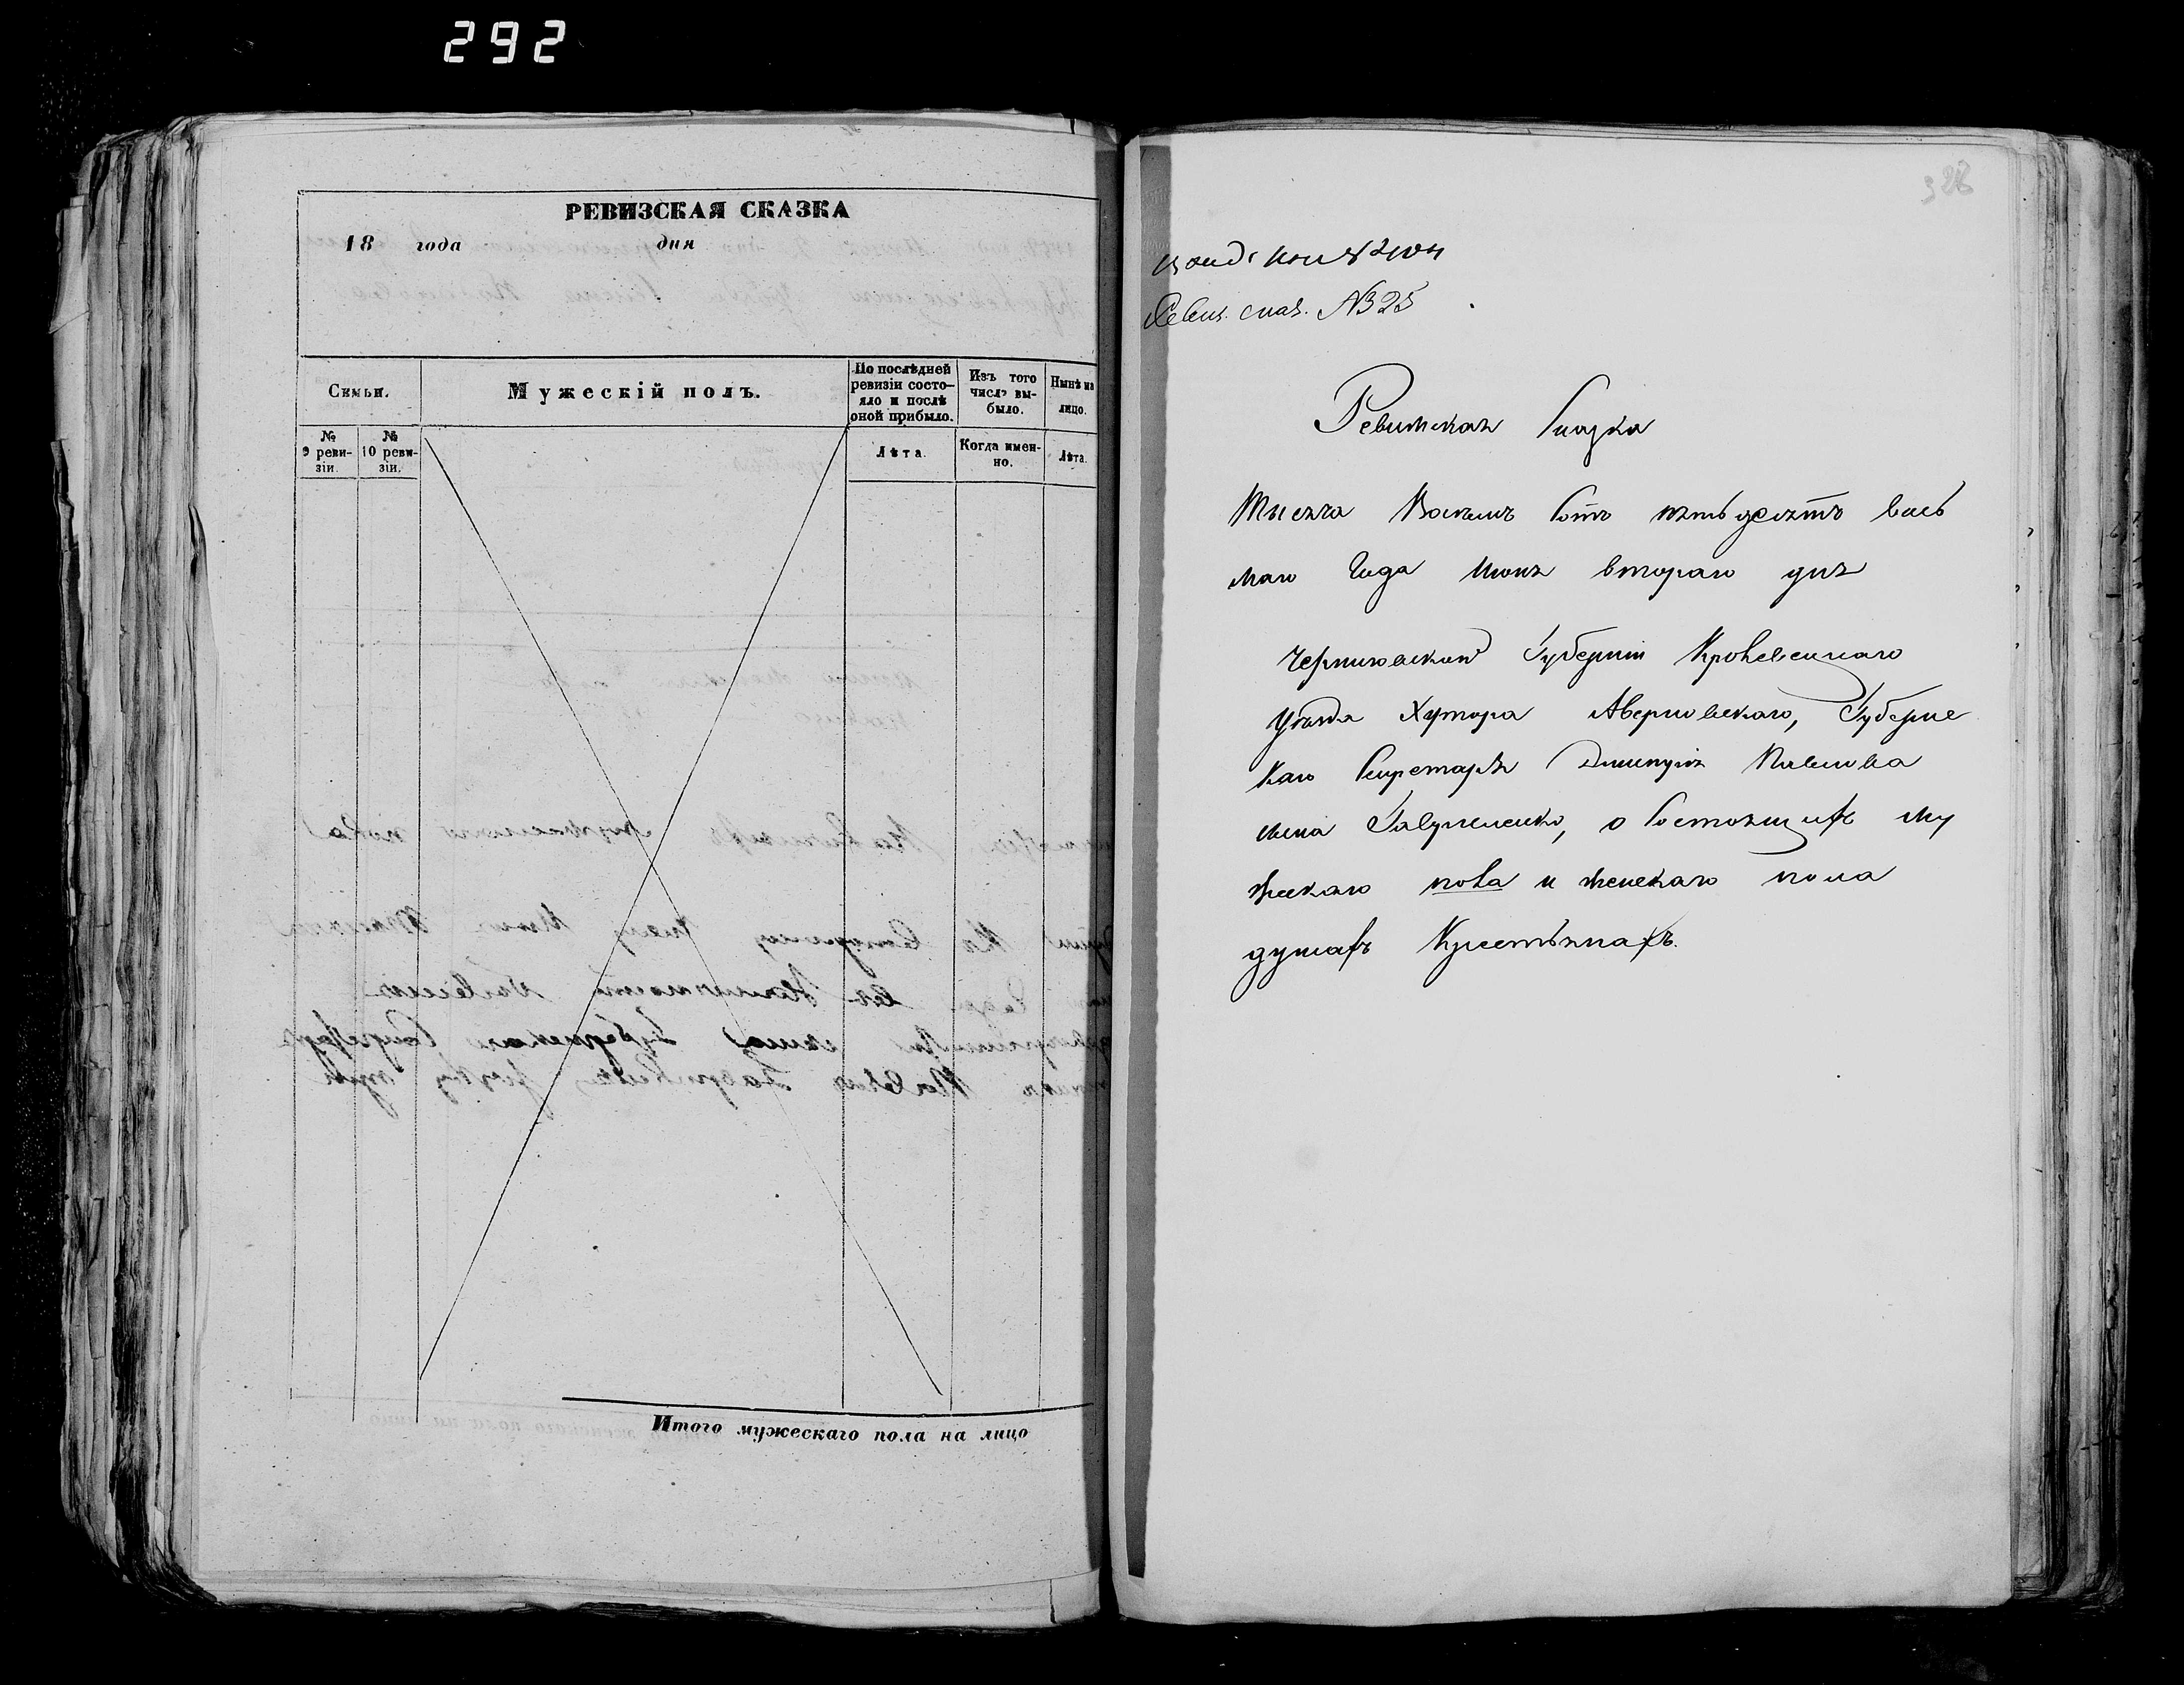 292
РЕВИЗСКАЯ СКАЗКА
18 года дня
Семьи.
Мужескій полъ.
По послѣдней ревизіи состо-
яло и послѣ
оной прибыло.
Изъ того
числа вы-
было.
Нынѣ на
лицо.
№
9 реви-
зіи.
№
10 реви-
зіи.
Лѣта.
Когда имен-
но.
Лѣта.
Итого мужескаго пола на лицо
328
Ревиз. сказ. №25
Ревизская Сказка
Тысяча Восемь Сотъ пятьдесятъ вось
маго Года Июня втораго дня
Черниговской Губерніи Кролевецкаго
уѣзда Хутора Губернс
каго Секретаря Дмитрія Павлова
сына о Состоящихъ му
жескаго пола и женскаго пола
душахъ Крестьянахъ.